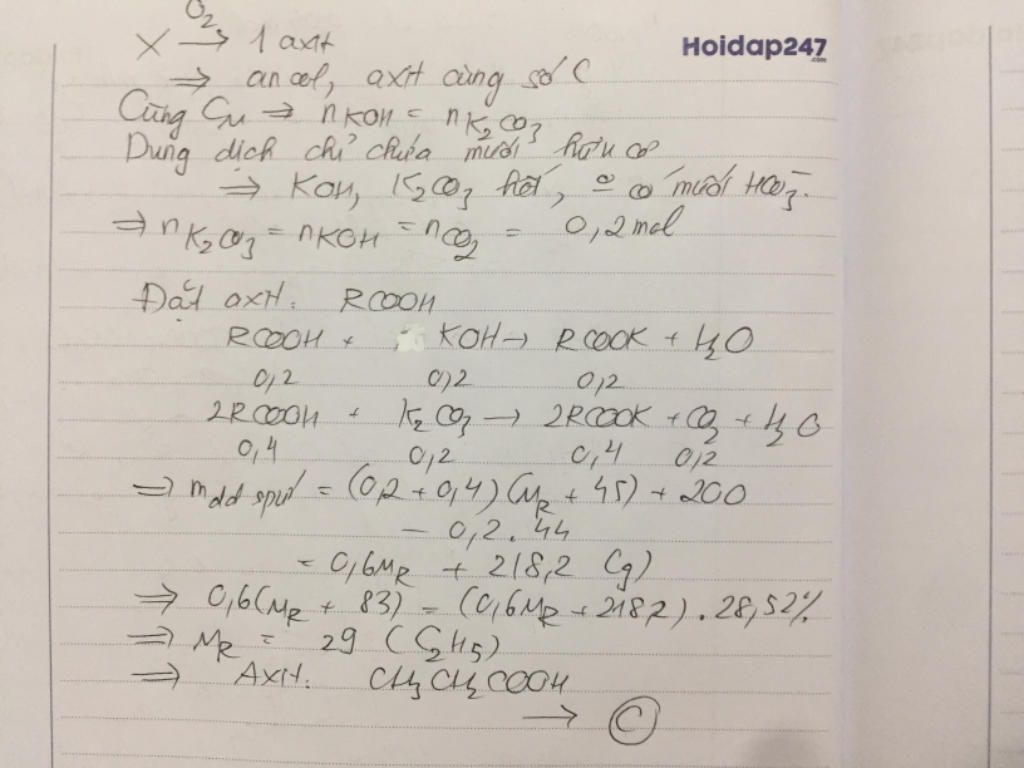 X —O₂→ 1 axit
Hoidap247
.com
⇒ ancol, axit cùng số C
Cùng CM ⇒ nKOH = nK₂CO₃
Dung dịch chỉ chứa muối hữu cơ
⇒ KOH, K₂CO₃ hết, có muối HCO₃⁻.
⇒ nK₂CO₃ = nKOH = nCO₂ = 0,2 mol
Đặt axit: RCOOH
RCOOH + KOH → RCOOK + H₂O
0,2 0,2 0,2
2RCOOH + K₂CO₃ → 2RCOOK + CO₂ + H₂O
0,4 0,2 0,4 0,2
⇒ mdd spư = (0,2 + 0,4)(MR + 45) + 200
− 0,2.44
= 0,6MR + 218,2 (g)
⇒ 0,6(MR + 83) = (0,6MR + 218,2).28,52%
⇒ MR = 29 (C₂H₅)
⇒ Axit: CH₃CH₂COOH
→ C